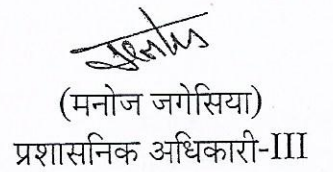 (मनोज जगेसिया)
प्रशासनिक अधिकारी-III